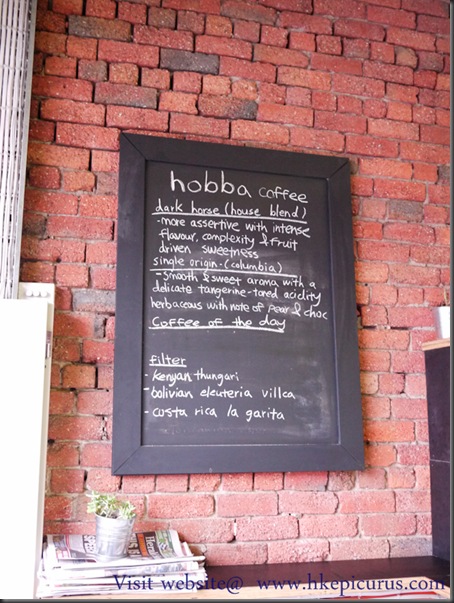 hobba coffee
dark horse (house blend)
-more assertive with intense
flavour, complexity & fruit
driven sweetness
single origin-(columbia)
-smooth & sweet aroma with a
delicate tangerine-toned acidity
herbaceous with note of pear & choc
Coffee of the day
filter
- kenyan thungari
- bolivian eleuteria villca
- costa rica la garita
Visit website@ www.hkepicurus.com